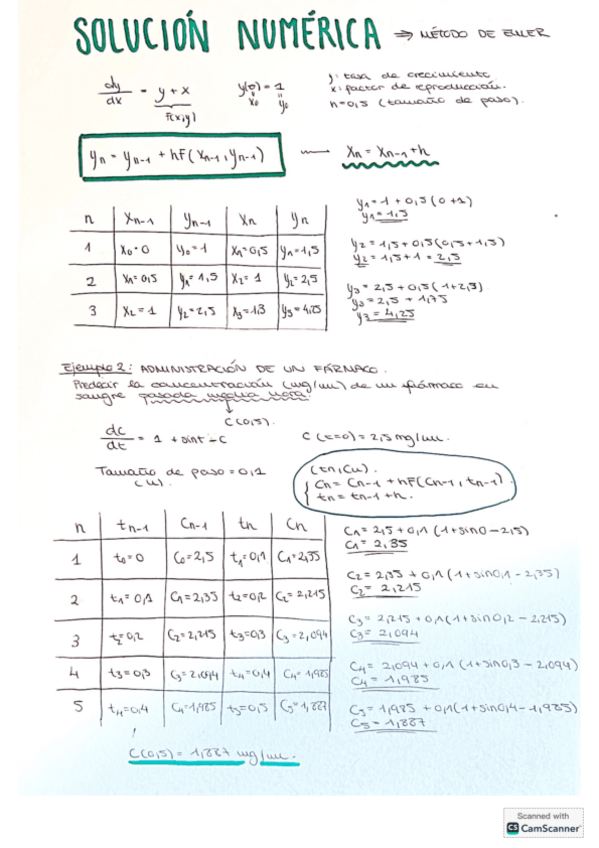 SOLUCIÓN NUMÉRICA ⇒ MÉTODO DE EULER
dy/dx = y + x
F(x,y)
y(0) = 1
x₀ y₀
y: tasa de crecimiento.
x: factor de reproducción.
h=0,5 (tamaño de paso).
yn = yn-1 + hF(xn-1, yn-1) → xn = xn-1 + h
n xn-1 yn-1 xn yn
1 x₀=0 y₀=1 x₁=0,5 y₁=1,5
2 x₁=0,5 y₁=1,5 x₂=1 y₂=2,5
3 x₂=1 y₂=2,5 x₃=1,5 y₃=4,25
y₁=1+0,5(0+1)
y₁=1,5
y₂=1,5+0,5(0,5+1,5)
y₂=1,5+1=2,5
y₃=2,5+0,5(1+2,5)
y₃=2,5+1,75
y₃=4,25
Ejemplo 2: ADMINISTRACIÓN DE UN FÁRMACO.
Predecir la concentración (mg/mL) de un fármaco en
sangre pasada media hora.
C(0,5).
dc/dt = 1 + sint - C
C(t=0) = 2,5 mg/mL.
Tamaño de paso = 0,1
(tn, Cn).
Cn = Cn-1 + hF(Cn-1, tn-1)
tn = tn-1 + h.
n tn-1 Cn-1 tn Cn
1 t₀=0 C₀=2,5 t₁=0,1 C₁=2,35
2 t₁=0,1 C₁=2,35 t₂=0,2 C₂=2,215
3 t₂=0,2 C₂=2,215 t₃=0,3 C₃=2,094
4 t₃=0,3 C₃=2,094 t₄=0,4 C₄=1,985
5 t₄=0,4 C₄=1,985 t₅=0,5 C₅=1,887
C₁=2,5+0,1(1+sin0-2,5)
C₁=2,35
C₂=2,35+0,1(1+sin0,1-2,35)
C₂=2,215
C₃=2,215+0,1(1+sin0,2-2,215)
C₃=2,094
C₄=2,094+0,1(1+sin0,3-2,094)
C₄=1,985
C₅=1,985+0,1(1+sin0,4-1,985)
C₅=1,887
C(0,5) = 1,887 mg/mL.
Scanned with
CS CamScanner